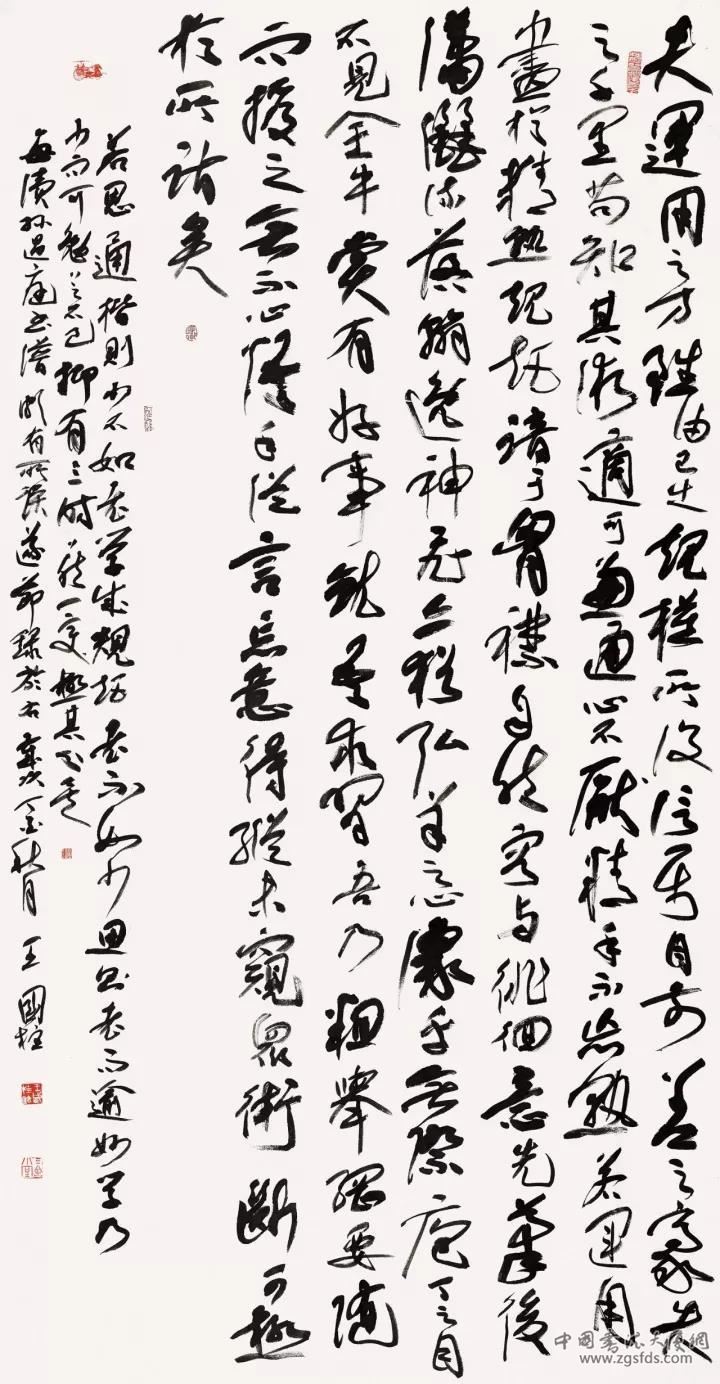 夫運用之方雖由己出規模所設信屬目前差之一豪失
之千里苟知其術適可兼通心不厭精手不忘熟若運用
盡於精熟規矩諳于胷襟自然容与徘徊意先筆後
瀟灑流落翰逸神飛亦猶弘羊之心豫乎無際庖丁之目
不見全牛嘗有好事就吾求習吾乃粗舉綱要随
而授之無不心悟手從言忘意得縱未窺衆術斷可極
於所詣矣
若思通楷則少不如老学成規矩老不如少思則老而逾妙学乃
少而可勉勉之不已抑有三時時然一變極其分矣
每讀孙過庭书譜頗有所獲遂節録於右歲次丁酉秋月 王國柱
中国书法大厦網
www.zgsfds.com